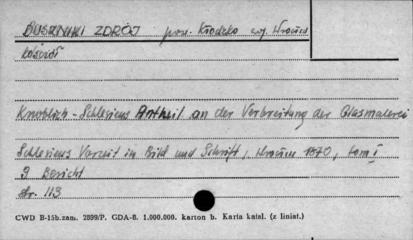 DUSZNIKI ZDRÓJ pow. Kłodzko woj. Wrocław
kościół
Knoblich - Schlesiens Antheil an der Verbreitung der Glasmalerei
Schlesiens Vorzeit in Bild und Schrift, Wrocław 1870, tom I
9 Bericht
str. 113
CWD B-15b.zam. 2899/P. GDA-8. 1.000.000. karton b. Karta katal. (z liniat.)